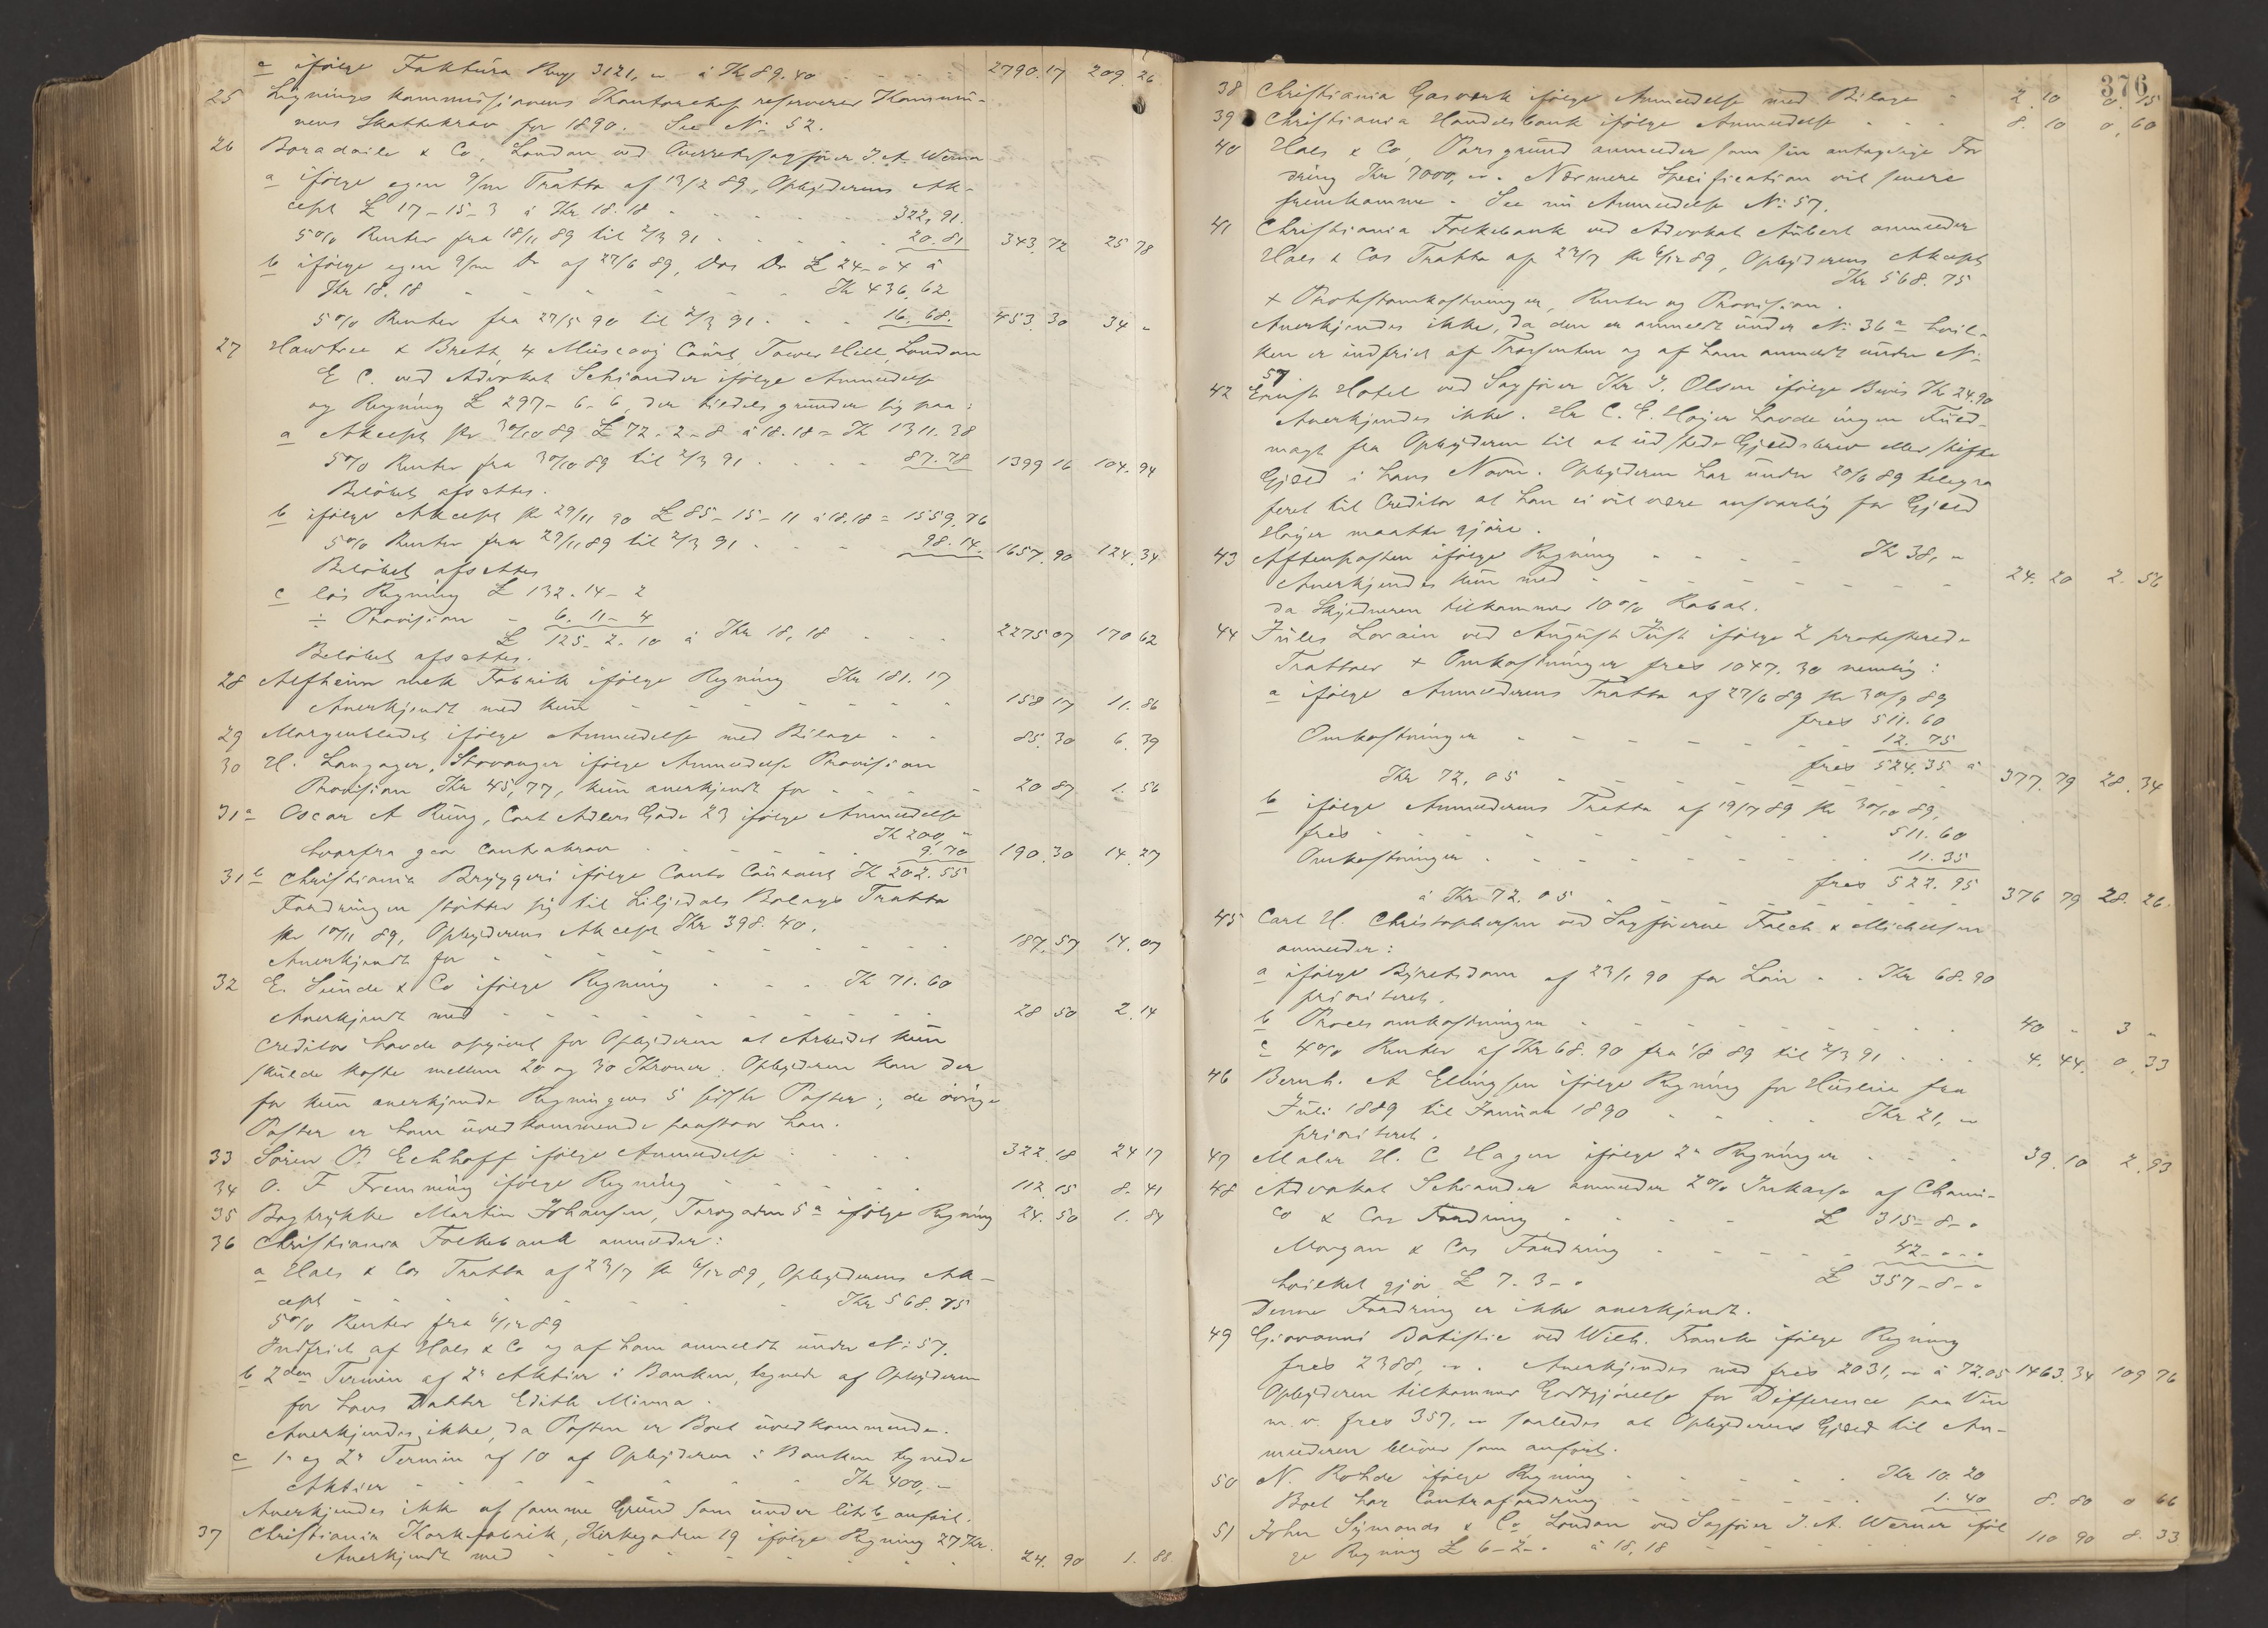 c ifølge Faktura Rmg 3121,„ à Kr 89.40 - - - - 2790.17 209.26
25 Lignings kommissionens Kontorchef reserverer Kommu-
nens Skattekrav for 1890. See No 52.
26 Boradaile & Co, London ved Overretssagfører J. A. Werner
a ifølge egen 9/m Tratta af 13/2 89, Opbyderens Ak-
cept £ 17-15-3 à Kr 18.18 - - - - 322.91.
5% Renter fra 18/11 89 til 2/3 91 - - - - 20.81 343.72 25 78
b ifølge egen 9/m Do af 27/6 89, Dos Do £ 24-04 à
Kr 18.18 - - - - Kr 436.62
5% Renter fra 27/5 90 til 2/3 91 - - - 16.68. 453.30 34 „
27 Hawtree & Brett, 4 Müscovy Court Tower Hill, London
E C. ved Advokat Schiander ifølge Anmeldelse
og Regning £ 297-6-6, der tildels grunder sig paa:
a Akcept pr 30/10 89 £ 72-2-8 à 18.18 = Kr 1311.38
5% Renter fra 30/10 89 til 2/3 91 - - - - 87.78 1399 16 104.94
Beløbet afsættes.
b ifølge Akcept pr 29/11 90 £ 85-15-11 à 18.18 = 1559.76
5% Renter fra 29/11 89 til 2/3 91 - - - 98.14. 1657.90 124.34
Beløbet afsættes
c løs Regning £ 132-14-2
÷ Provision - 6.11-4
£ 125-2-10 à Kr 18,18 - - - 2275 07 170 62
Beløbet afsættes.
28 Alfheim mek Fabrik ifølge Regning Kr 181.17
Anerkjendt med kun - - - - - - - 158 17 11.86
29 Morgenbladet ifølge Anmeldelse med Bilage - - 85.30 6.39
30 H. Langager, Stavanger ifølge Anmeldelse Provision
Provision Kr 45,77, kun anerkjendt for - - - - 20 87 1.56
31a Oscar A Ring, Cort Adlers Gade 23 ifølge Anmeldelse
Kr 200, „
hvorfra gaar Contrakrav - - - - - 9.70 190.30 14.27
31b Christiania Bryggeri ifølge Conto Courant Kr 202.55
Fordringen støtter sig til Liljedals Bolags Tratta
pr 10/11 89, Opbyderens Akcept Kr 398.40.
Anerkjendt for - - - - - - - - 187.57 14.07
32 E. Sunde & Co ifølge Regning - - - Kr 71.60
Anerkjendt med - - - - - - - - 28 50 2.14
Creditor havde opgivet for Opbyderen at Arbeidet kun
skulde koste mellem 20 og 30 Kroner. Opbyderen kan der
for kun anerkjende Regningens 5 sidste Poster; de øvrige
Poster er ham uvedkommende paastaar han.
33 Søren O. Eckhoff ifølge Anmeldelse - - - - 322.18 24 17
34 O. F Fremming ifølge Regning - - - - - 112.15 8.41
35 Bogtrykker Martin Johansen, Torvgaden 5a ifølge Regning 24.50 1.84
36 Christiania Folkebank anmelder:
a Haes & Cos Tratta af 23/7 pr 6/12 89, Opbyderens Ak-
cept - - - - - - Kr 568.75
5% Renter fra 6/12 89
Indfriet af Haes & Co og af ham anmeldt under No 57.
b 2den Termin af 2r Aktier i Banken, tegnede af Opbyderen
for hans Datter Edith Minna.
Anerkjendes ikke, da Posten er Boet uvedkommende.
c 1r og 2r Termin af 10 af Opbyderen i Banken tegnede
Aktier - - - - - - - Kr 400,-
Anerkjendes ikke af samme Grund som under litr b anført.
37 Christiania Korkfabrik, Kirkegaden 19 ifølge Regning 27 Kr.
Anerkjendt med - - - - - - - - 24.90 1.88
376
38 Christiania Gasværk ifølge Anmeldelse med Bilage - 2.10 0.15
39 Christiania Handelsbank ifølge Anmeldelse - - - 8.10 0,60
40 Haes & Co, Porsgrund anmelder som sin antagelige For
dring Kr 7000,„. Nærmere Specification vil senere
fremkomme. See nu Anmeldelse No 57.
41 Christiania Folkebank ved Advokat Aubert anmelder
Haes & Cos Tratta af 23/7 pr 6/12 89, Opbyderens Akcept
Kr 568.75
+ Protestomkostninger, Renter og Provision.
Anerkjendes ikke, da den er anmeldt under No 36a hvil-
ken er indfriet af Trassenten og af ham anmeldt under No
57
42 Ernst Hotel ved Sagfører Kr J. Olsen ifølge Bevis Kr 24.90
Anerkjendes ikke. Hr C. E. Høyer havde ingen Fuld-
magt fra Opbyderen til at udstede Gjældsbrev eller stifte
Gjæld i hans Navn. Opbyderen har under 20/6 89 telegra
feret til Creditor at han ei vil være ansvarlig for Gjæld
Høyer maatte gjøre.
43 Aftenposten ifølge Regning - - - - Kr 38,„
Anerkjendes kun med - - - - - - - 24.20 2.56
da Skyldneren tilkommer 10% Rabat.
44 Jules Lorain ved August Just ifølge 2 protesterede
Trattaer + Omkostninger frcs 1047.30 nemlig:
a ifølge Anmelderens Tratta af 27/6 89 pr 30/9 89
frcs 511.60
Omkostninger - - - - - - - 12.75
frcs 524.35 à
Kr 72,05 - - - - - - - 377.79 28.34
b ifølge Anmelderens Tratta af 19/7 89 pr 30/10 89,
frcs - - - - - - - - 511.60
Omkostninger - - - - - - - - 11.35
frcs 522.95
à Kr 72.05 - - - - - - - - 376 79 28.26.
45 Carl H. Christophersen ved Sagførerne Falch & Michelsen
anmelder:
a ifølge Byretsdom af 23/1 90 for Løn - - Kr 68.90
prioriteret.
b Procesomkostninger - - - - - - - - 40 „ 3 „
c 4% Renter af Kr 68.90 fra 1/8 89 til 2/3 91 - - - 4.44. 0.33
46 Bernh. A Ellingsen ifølge Regning for Husleie fra
Juli 1889 til Januar 1890 - - - - Kr 21,„
prioriteret.
47 Maler H. C Hagen ifølge 2r Regninger - - - 39.10 2.93
48 Advokat Schiander anmelder 2% Inkasso af Chami-
co & Cos Fordring - - - - - £ 315-8-0
Morgan & Cos Fordring - - - - - 42-0-0
hvilket gjør £ 7.3-0 £ 357-8-0
Denne Fordring er ikke anerkjendt.
49 Giovanni Batistie ved Wilh. Franck ifølge Regning
frcs 2388,„. Anerkjendes med frcs 2031,„ à 72.05 1463.34 109 76
Opbyderen tilkommer Godtgjørelse for Difference paa Vin
m.v. frcs 357,„ saaledes at Opbyderens Gjæld til An-
melderen bliver som anført.
50 N. Rohde ifølge Regning - - - - - Kr 10.20
Boet har Contrafordring - - - - - 1.40 8.80 0 66
51 John Symonds & Co, London ved Sagfører J. A. Werner iføl
ge Regning £ 6-2-0 à 18,18 - - - - 110 90 8.33